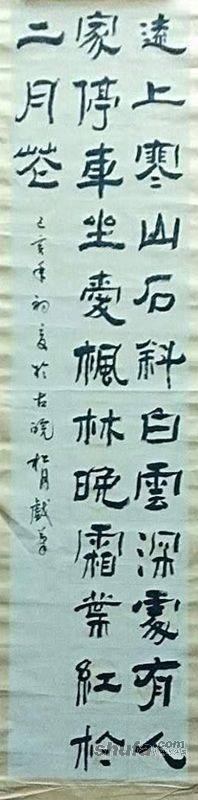 遠上寒山石斜白雲深處有人
家停車坐愛楓林晚霜葉紅於
二月花
己亥年初夏於古皖松月戲筆
shufa.com